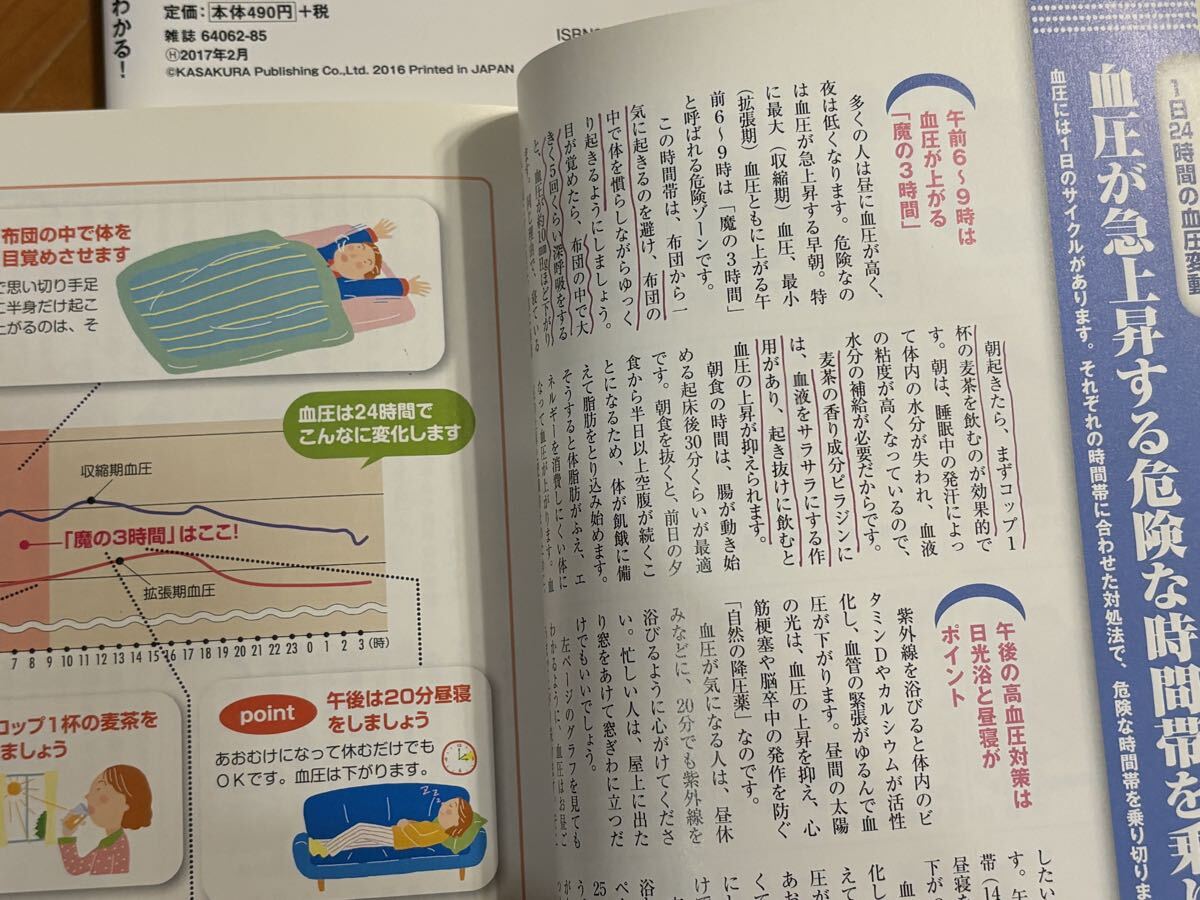 わかる!
定価:本体490円+税
雑誌 64062-85
Ⓗ2017年2月
©KASAKURA Publishing Co.,Ltd. 2016 Printed in JAPAN
ISBN
1日24時間の血圧変動
血圧が急上昇する危険な時間帯を乗り
血圧には1日のサイクルがあります。それぞれの時間帯に合わせた対処法で、危険な時間帯を乗り切りま
午前6~9時は
血圧が上がる
「魔の3時間」
多くの人は昼に血圧が高く、
夜は低くなります。危険なの
は血圧が急上昇する早朝。特
に最大(収縮期)血圧、最小
(拡張期)血圧ともに上がる午
前6~9時は「魔の3時間」
と呼ばれる危険ゾーンです。
この時間帯は、布団から一
気に起きるのを避け、布団の
中で体を慣らしながらゆっく
り起きるようにしましょう。
目が覚めたら、布団の中で大
きく5回くらい深呼吸をする
と、血圧が約10㎜Hgほど下がり
ます。同じ理由で、寝ている
朝起きたら、まずコップ1
杯の麦茶を飲むのが効果的で
す。朝は、睡眠中の発汗によっ
て体内の水分が失われ、血液
の粘度が高くなっているので、
水分の補給が必要だからです。
麦茶の香り成分ピラジンに
は、血液をサラサラにする作
用があり、起き抜けに飲むと
血圧の上昇が抑えられます。
朝食の時間は、腸が動き始
める起床後30分くらいが最適
です。朝食を抜くと、前日の夕
食から半日以上空腹が続くこ
とになるため、体が飢餓に備
えて脂肪をとり込み始めます。
そうすると体脂肪がふえ、エ
ネルギーを消費しにくい体に
なって血圧が上がります。血
午後の高血圧対策は
日光浴と昼寝が
ポイント
紫外線を浴びると体内のビ
タミンDやカルシウムが活性
化し、血管の緊張がゆるんで血
圧が下がります。昼間の太陽
の光は、血圧の上昇を抑え、心
筋梗塞や脳卒中の発作を防ぐ
「自然の降圧薬」なのです。
血圧が気になる人は、昼休
みなどに、20分でも紫外線を
浴びるように心がけてくださ
い。忙しい人は、屋上に出た
り窓をあけて窓ぎわに立つだ
けでもいいでしょう。
左ページのグラフを見ても
わかるように、血圧はお昼ご
したい
す。午
帯(14
昼寝な
下が
血
化し
えて
圧が
あお
くて
に
け
浴
ペ
25
布団の中で体を
目覚めさせます
で思い切り手足
に半身だけ起こ
上がるのは、そ
血圧は24時間で
こんなに変化します
収縮期血圧
「魔の3時間」はここ!
拡張期血圧
7 8 9 10 11 12 13 14 15 16 17 18 19 20 21 22 23 0 1 2 3(時)
コップ1杯の麦茶を
ましょう
point
午後は20分昼寝
をしましょう
あおむけになって休むだけでも
OKです。血圧は下がります。